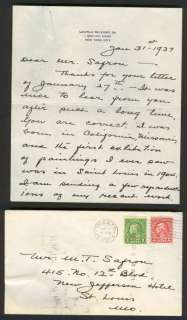 NEW YORK CITY
Jan 31st 1937
Dear Mr. Safron -
Thanks for your letter
of January 27th. - It was
nice to hear from you
after such a long time.
You are correct. I was
born in California, Missouri,
and the first exhibition
of paintings I ever saw
was in Saint Louis in 1904.
I am sending a few reproductions
of my recent work
Mr. M. T. Safron
415 No. 12th Blvd.
New Jefferson Hotel
St Louis
Mo.